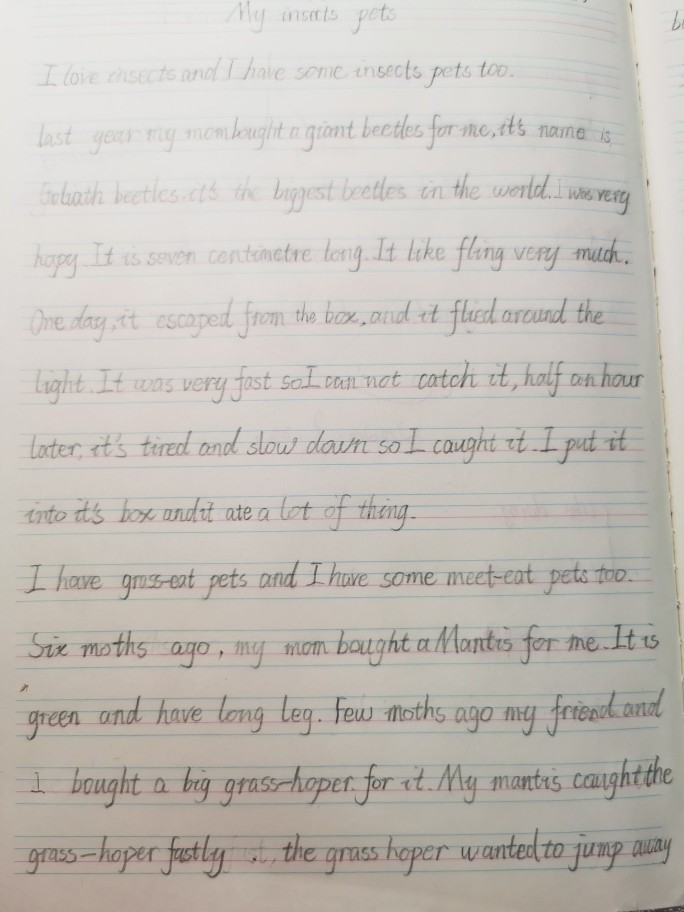 My insects pets
I love insects and I have some insects pets too.
last year my mom bought a giant beetles for me, it's name is
Goliath beetles. it's the biggest beetles in the world. I was very
hapy. It is seven centimetre long. It like fling very much.
One day, it escaped from the box, and it flied around the
light. It was very fast so I can not catch it, half an hour
later, it's tired and slow down so I caught it. I put it
into it's box and it ate a lot of thing.
I have grass-eat pets and I have some meet-eat pets too.
Six moths ago, my mom bought a Mantis for me. It is
green and have long leg. Few moths ago my friend and
I bought a big grass-hoper for it. My mantis caught the
grass-hoper fastly, the grass hoper wanted to jump away